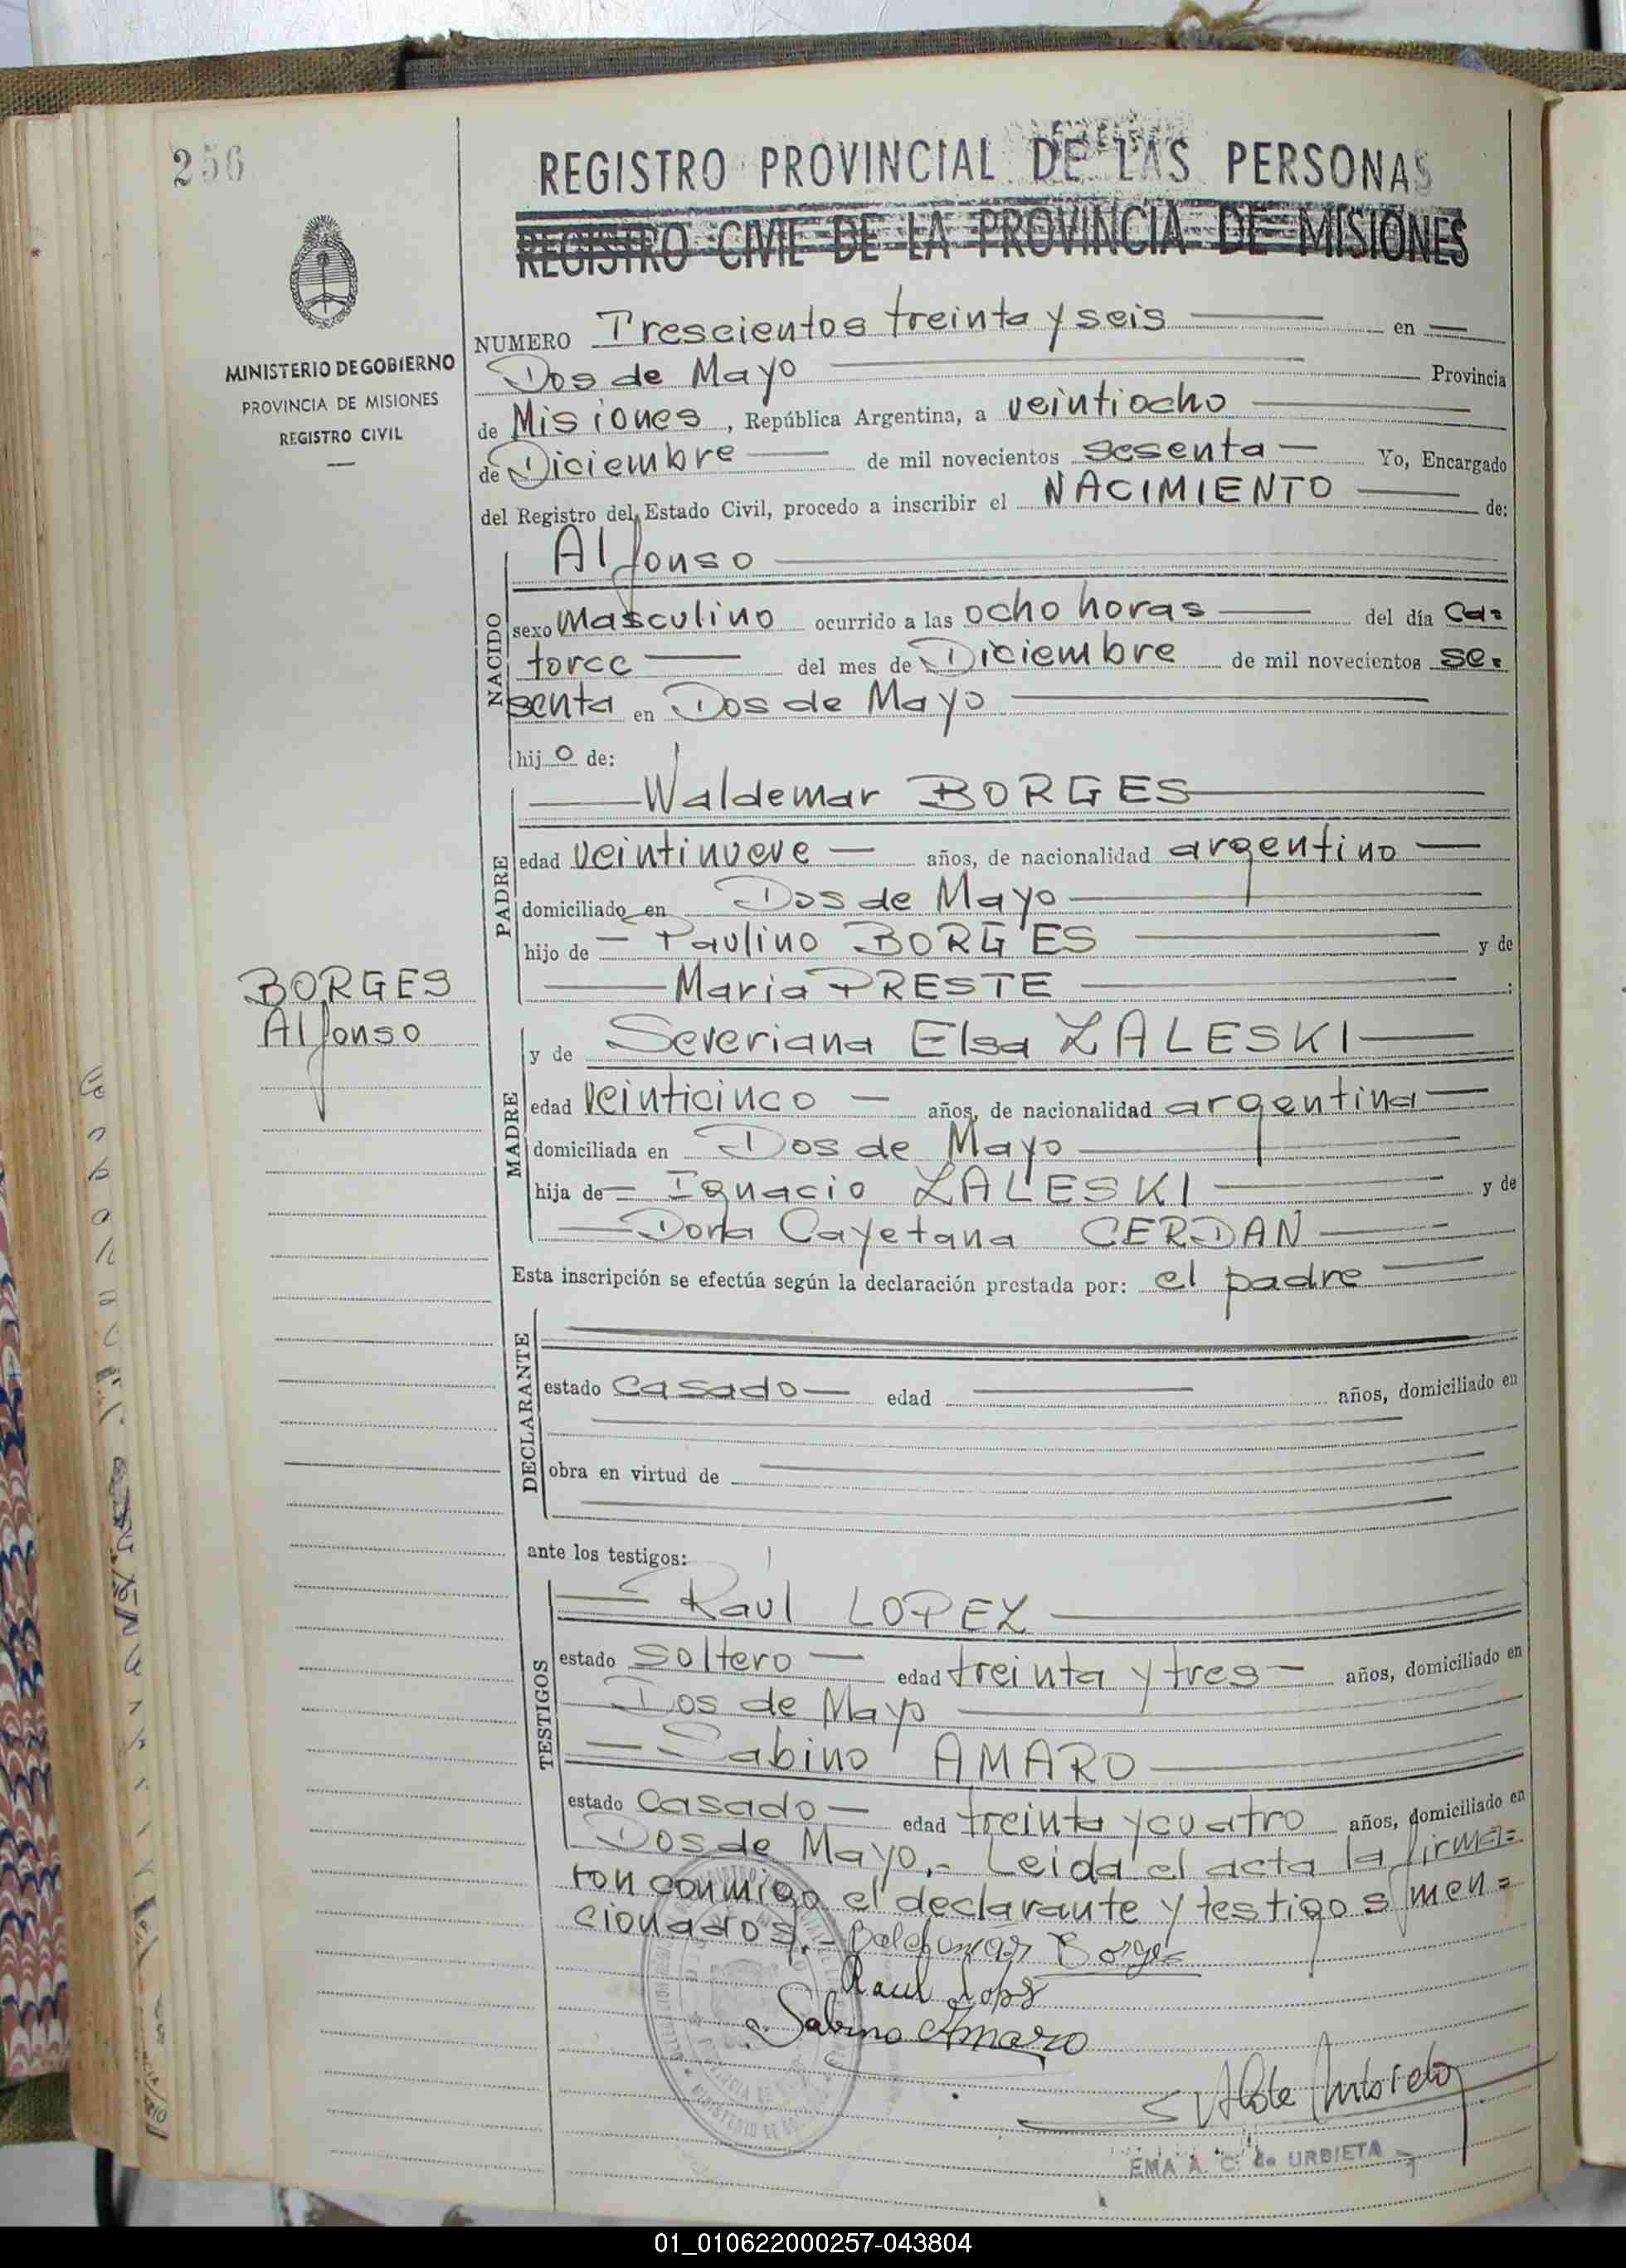 256
REGISTRO PROVINCIAL DE LAS PERSONAS
REGISTRO CIVIL DE LA PROVINCIA DE MISIONES
MINISTERIO DE GOBIERNO
PROVINCIA DE MISIONES
REGISTRO CIVIL
NUMERO Trescientos treinta y seis en
Dos de Mayo Provincia
de Misiones, República Argentina, a veintiocho
de Diciembre de mil novecientos sesenta Yo, Encargado
del Registro del Estado Civil, procedo a inscribir el NACIMIENTO de:
NACIDO
Alfonso
sexo Masculino ocurrido a las ocho horas del día Ca=
torce del mes de Diciembre de mil novecientos se=
senta en Dos de Mayo
hijo de:
PADRE
Waldemar BORGES
edad veintinueve años, de nacionalidad argentino
domiciliado en Dos de Mayo
hijo de Paulino BORGES y de
Maria PRESTE :
BORGES
Alfonso
MADRE
y de Severiana Elsa ZALESKI
edad veinticinco años, de nacionalidad argentina
domiciliada en Dos de Mayo
hija de Ignacio ZALESKI y de
Doña Cayetana CERDAN
Esta inscripción se efectúa según la declaración prestada por: el padre
DECLARANTE
estado casado edad años, domiciliado en
obra en virtud de
ante los testigos:
TESTIGOS
Raúl LOPEZ
estado soltero edad treinta y tres años, domiciliado en
Dos de Mayo
Sabino AMARO
estado casado edad treinta y cuatro años, domiciliado en
Dos de Mayo.- Leida el acta la firma=
ron conmigo el declarante y testigos men=
cionados.- Borges
Raul Lopz
Sabino Amaro
EMA A. C. de URBIETA
01_010622000257-043804